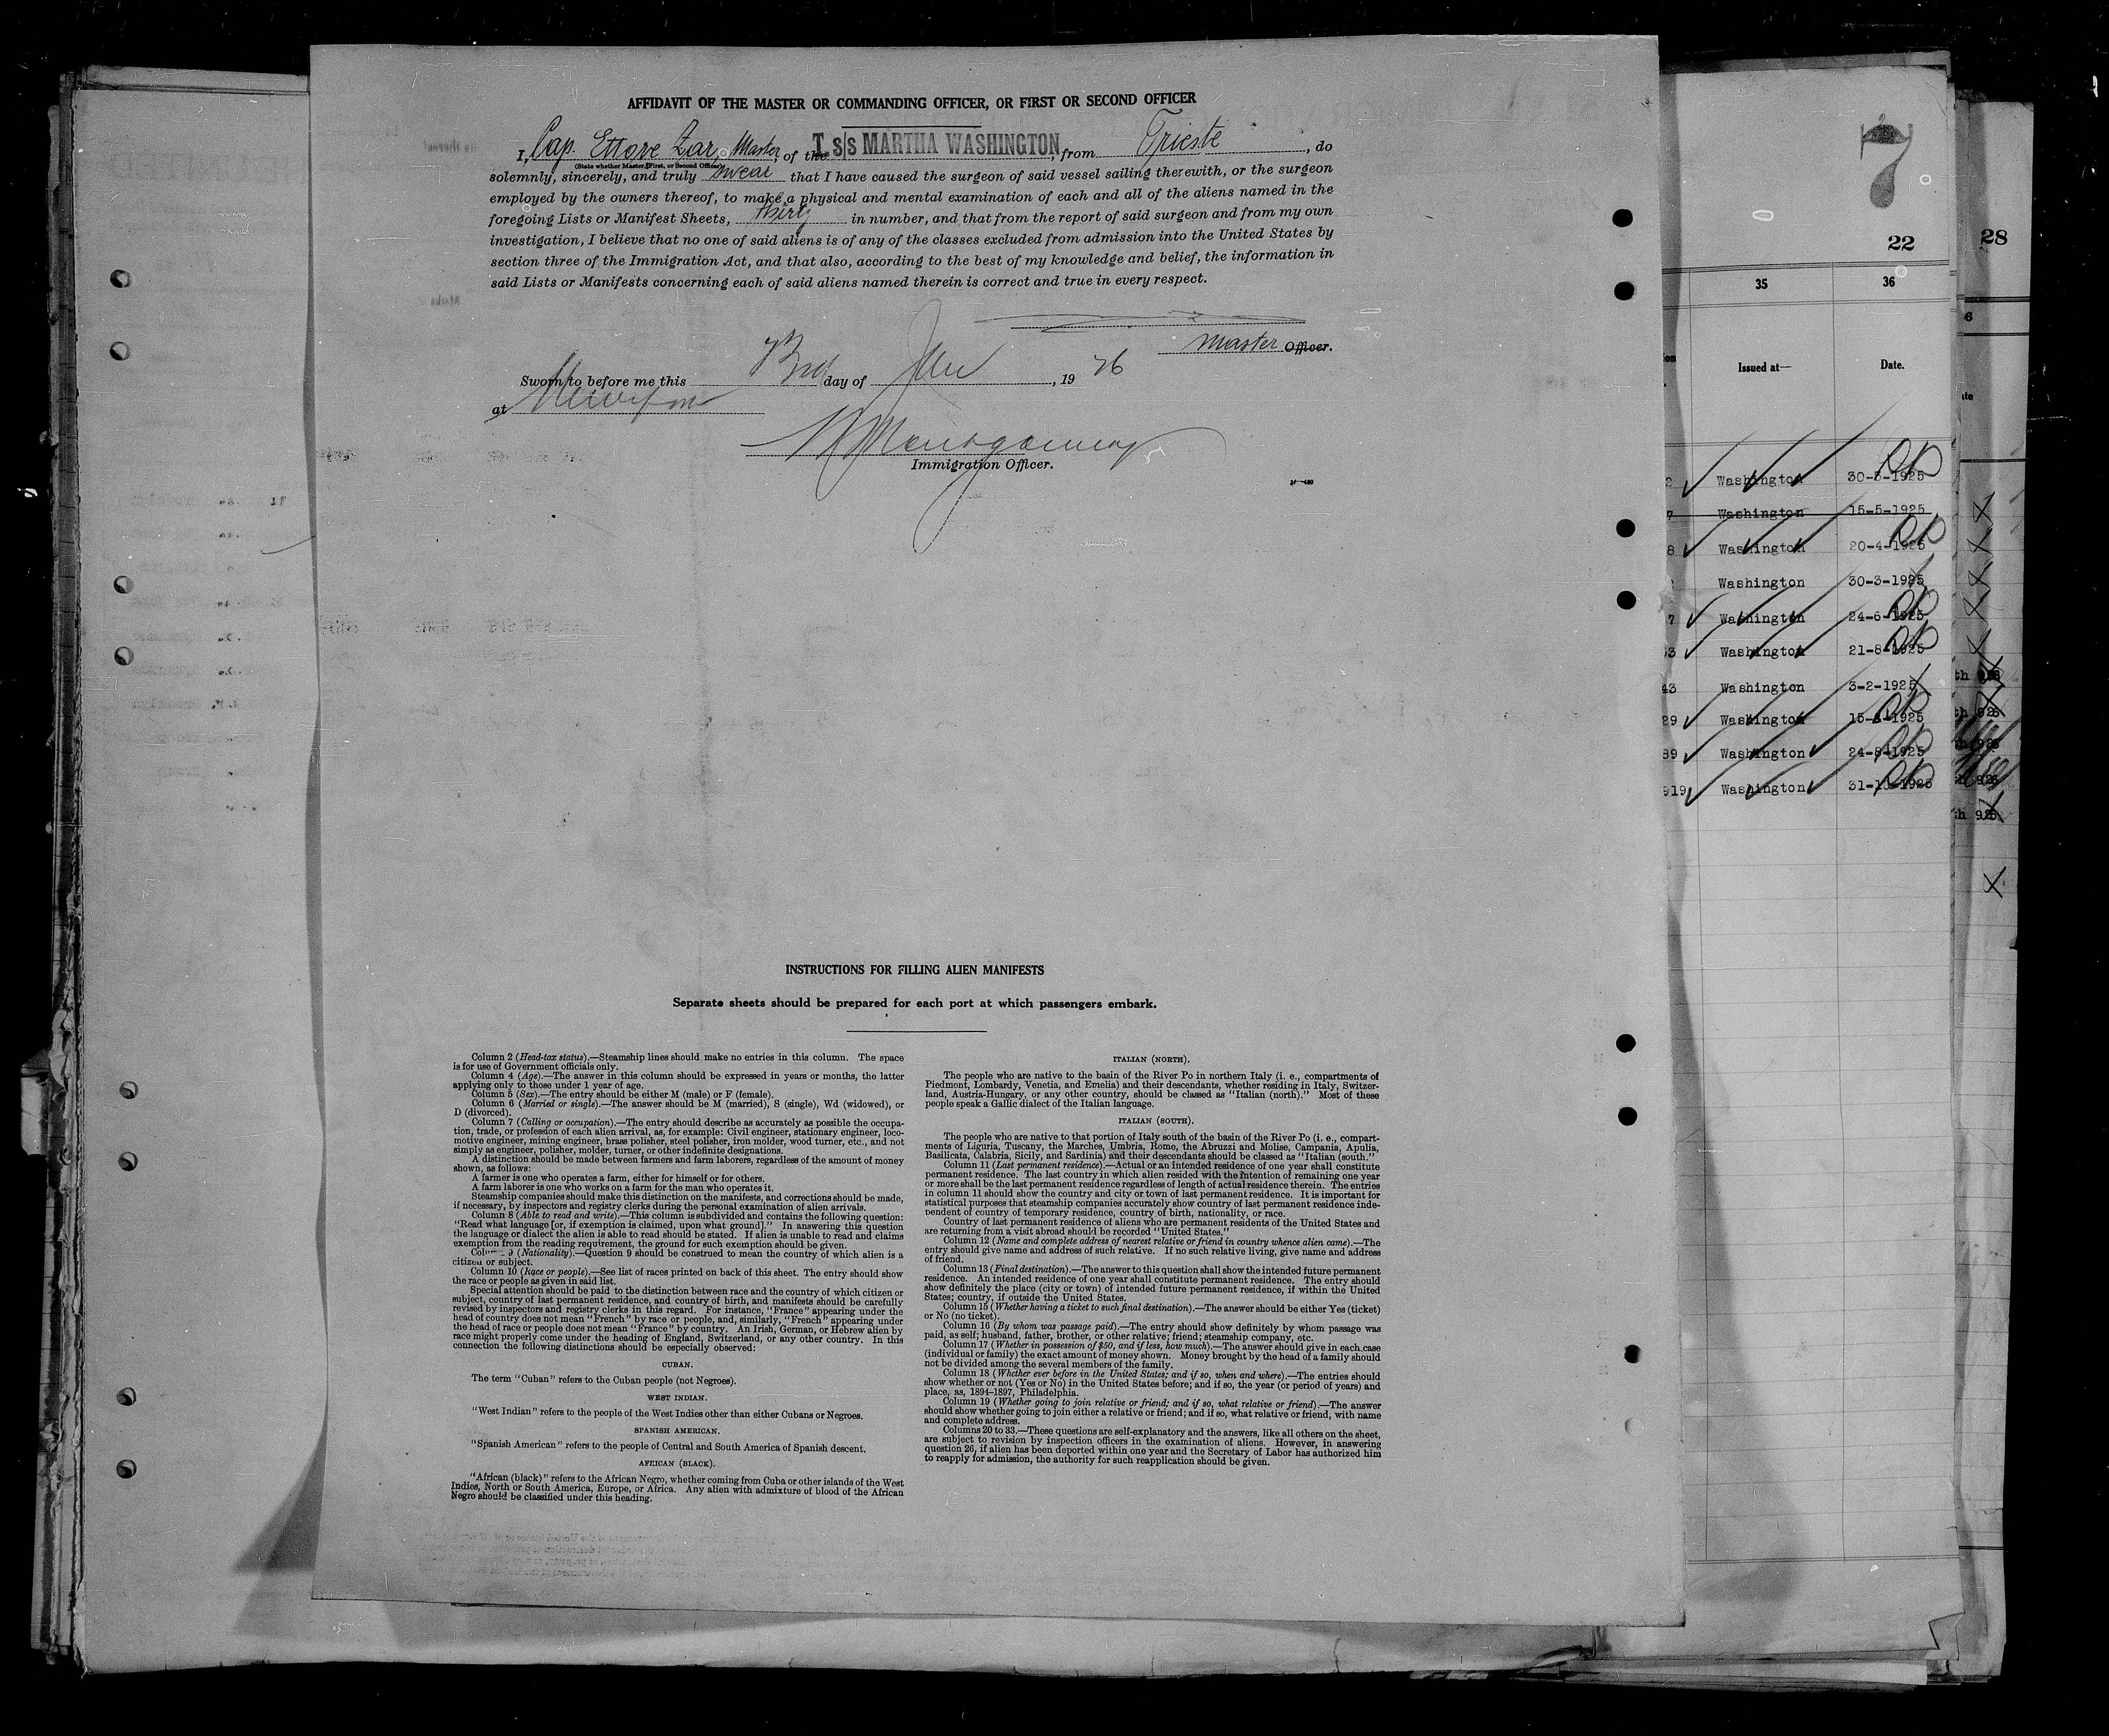 AFFIDAVIT OF THE MASTER OR COMMANDING OFFICER, OR FIRST OR SECOND OFFICER
I, Cap. Ettore Zar, Master of the T. s/s MARTHA WASHINGTON, from Trieste, do
(State whether Master, First, or Second Officer)
solemnly, sincerely, and truly swear that I have caused the surgeon of said vessel sailing therewith, or the surgeon
employed by the owners thereof, to make a physical and mental examination of each and all of the aliens named in the
foregoing Lists or Manifest Sheets, thirty in number, and that from the report of said surgeon and from my own
investigation, I believe that no one of said aliens is of any of the classes excluded from admission into the United States by
section three of the Immigration Act, and that also, according to the best of my knowledge and belief, the information in
said Lists or Manifests concerning each of said aliens named therein is correct and true in every respect.
Master Officer.
Sworn to before me this day of Jan, 1926
at
Montgomery
Immigration Officer.
INSTRUCTIONS FOR FILLING ALIEN MANIFESTS
Separate sheets should be prepared for each port at which passengers embark.
Column 2 (Head-tax status).—Steamship lines should make no entries in this column. The space
is for use of Government officials only.
Column 4 (Age).—The answer in this column should be expressed in years or months, the latter
applying only to those under 1 year of age.
Column 5 (Sex).—The entry should be either M (male) or F (female).
Column 6 (Married or single).—The answer should be M (married), S (single), Wd (widowed), or
D (divorced).
Column 7 (Calling or occupation).—The entry should describe as accurately as possible the occupa-
tion, trade, or profession of each alien arrival, as, for example: Civil engineer, stationary engineer, loco-
motive engineer, mining engineer, brass polisher, steel polisher, iron molder, wood turner, etc., and not
simply as engineer, polisher, molder, turner, or other indefinite designations.
A distinction should be made between farmers and farm laborers, regardless of the amount of money
shown, as follows:
A farmer is one who operates a farm, either for himself or for others.
A farm laborer is one who works on a farm for the man who operates it.
Steamship companies should make this distinction on the manifests, and corrections should be made,
if necessary, by inspectors and registry clerks during the personal examination of alien arrivals.
Column 8 (Able to read and write).—This column is subdivided and contains the following question:
"Read what language [or, if exemption is claimed, upon what ground]." In answering this question
the language or dialect the alien is able to read should be stated. If alien is unable to read and claims
exemption from the reading requirement, the ground for such exemption should be given.
Column 9 (Nationality).—Question 9 should be construed to mean the country of which alien is a
citizen or subject.
Column 10 (Race or people).—See list of races printed on back of this sheet. The entry should show
the race or people as given in said list.
Special attention should be paid to the distinction between race and the country of which citizen or
subject, country of last permanent residence, and country of birth, and manifests should be carefully
revised by inspectors and registry clerks in this regard. For instance, "France" appearing under the
head of country does not mean "French" by race or people, and, similarly, "French" appearing under
the head of race or people does not mean "France" by country. An Irish, German, or Hebrew alien by
race might properly come under the heading of England, Switzerland, or any other country. In this
connection the following distinctions should be especially observed:
CUBAN.
The term "Cuban" refers to the Cuban people (not Negroes).
WEST INDIAN.
"West Indian" refers to the people of the West Indies other than either Cubans or Negroes.
SPANISH AMERICAN.
"Spanish American" refers to the people of Central and South America of Spanish descent.
AFRICAN (BLACK).
"African (black)" refers to the African Negro, whether coming from Cuba or other islands of the West
Indies, North or South America, Europe, or Africa. Any alien with admixture of blood of the African
Negro should be classified under this heading.
ITALIAN (NORTH).
The people who are native to the basin of the River Po in northern Italy (i. e., compartments of
Piedmont, Lombardy, Venetia, and Emelia) and their descendants, whether residing in Italy, Switzer-
land, Austria-Hungary, or any other country, should be classed as "Italian (north)." Most of these
people speak a Gallic dialect of the Italian language.
ITALIAN (SOUTH).
The people who are native to that portion of Italy south of the basin of the River Po (i. e., compart-
ments of Liguria, Tuscany, the Marches, Umbria, Rome, the Abruzzi and Molise, Campania, Apulia,
Basilicata, Calabria, Sicily, and Sardinia) and their descendants should be classed as "Italian (south."
Column 11 (Last permanent residence).—Actual or an intended residence of one year shall constitute
permanent residence. The last country in which alien resided with the intention of remaining one year
or more shall be the last permanent residence regardless of length of actual residence therein. The entries
in column 11 should show the country and city or town of last permanent residence. It is important for
statistical purposes that steamship companies accurately show country of last permanent residence inde-
pendent of country of temporary residence, country of birth, nationality, or race.
Country of last permanent residence of aliens who are permanent residents of the United States and
are returning from a visit abroad should be recorded "United States."
Column 12 (Name and complete address of nearest relative or friend in country whence alien came).—The
entry should give name and address of such relative. If no such relative living, give name and address
of friend.
Column 13 (Final destination).—The answer to this question shall show the intended future permanent
residence. An intended residence of one year shall constitute permanent residence. The entry should
show definitely the place (city or town) of intended future permanent residence, if within the United
States; country, if outside the United States.
Column 15 (Whether having a ticket to such final destination).—The answer should be either Yes (ticket)
or No (no ticket).
Column 16 (By whom was passage paid).—The entry should show definitely by whom passage was
paid, as self; husband, father, brother, or other relative; friend; steamship company, etc.
Column 17 (Whether in possession of $50, and if less, how much).—The answer should give in each case
(individual or family) the exact amount of money shown. Money brought by the head of a family should
not be divided among the several members of the family.
Column 18 (Whether ever before in the United States; and if so, when and where).—The entries should
show whether or not (Yes or No) in the United States before; and if so, the year (or period of years) and
place, as, 1894–1897, Philadelphia.
Column 19 (Whether going to join relative or friend; and if so, what relative or friend).—The answer
should show whether going to join either a relative or friend; and if so, what relative or friend, with name
and complete address.
Columns 20 to 33.—These questions are self-explanatory and the answers, like all others on the sheet,
are subject to revision by inspection officers in the examination of aliens. However, in answering
question 26, if alien has been deported within one year and the Secretary of Labor has authorized him
to reapply for admission, the authority for such reapplication should be given.
7
22
35 36
Issued at— Date.
Washington 30-3-1925
Washington 15-5-1925
Washington 20-4-1925
Washington 30-3-1925
Washington 24-6-1925
Washington 21-8-1925
Washington 3-2-1925
Washington
Washington 24-8-1925
919 Washington 31-10-1925
28